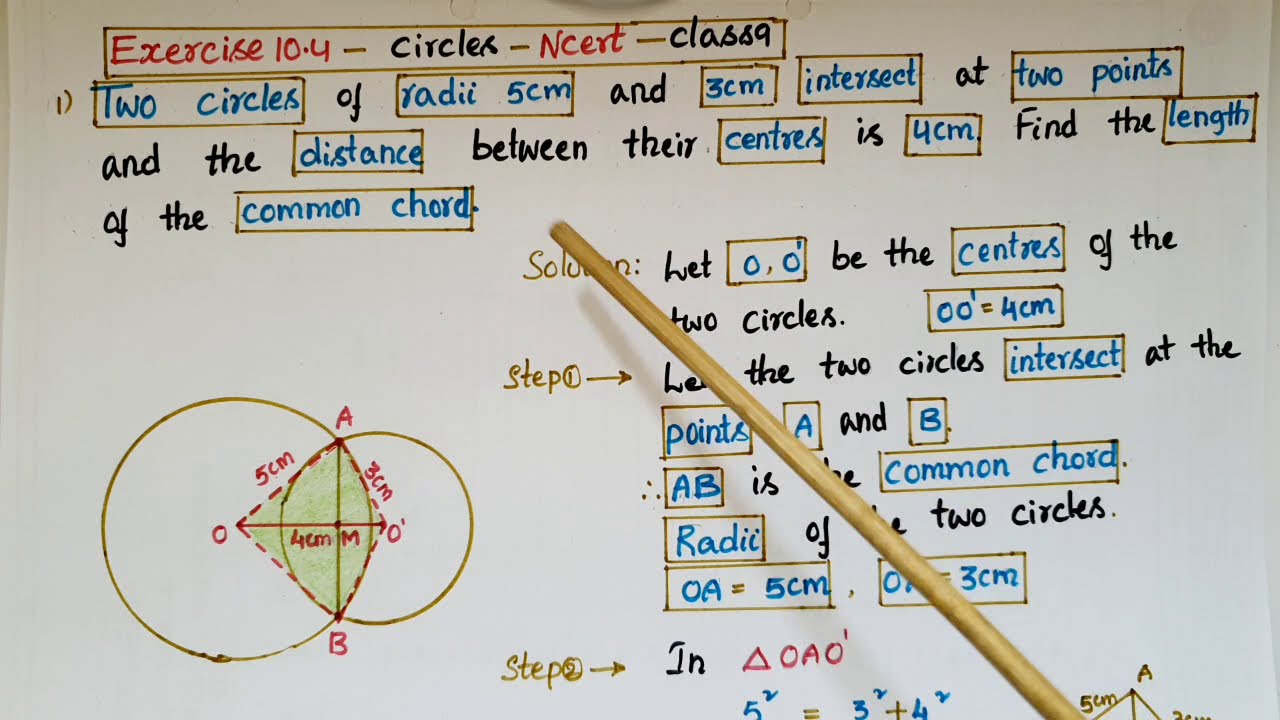 Exercise 10.4 - Circles - Ncert - class9
1) Two circles of radii 5cm and 3cm intersect at two points
and the distance between their centres is 4cm. Find the length
of the common chord.
Solution: Let O, O' be the centres of the
two circles. OO' = 4cm
Step① → Let the two circles intersect at the
points A and B.
∴ AB is the common chord.
Radii of the two circles.
OA = 5cm, = 3cm
Step② → In △OAO'
5² = 3² + 4²
A
5cm
3cm
O
4cm
M
O'
B
A
5cm
3cm